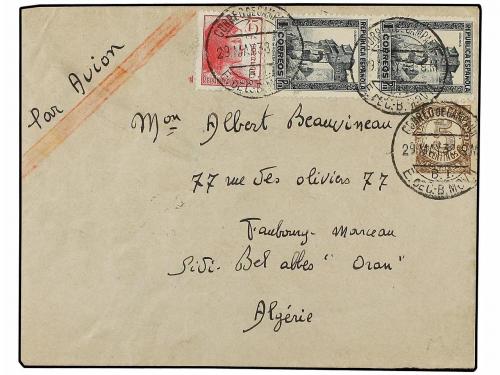 Par Avion
CORREOS
REPUBLICA ESPAÑOLA
CORREOS
REPUBLICA ESPAÑOLA
CORREO DE CAMPAÑA
Mon Albert Beauvineau
77 rue des oliviers 77
Faubourg-Marceau
Sidi-Bel abbes "Oran"
Algérie